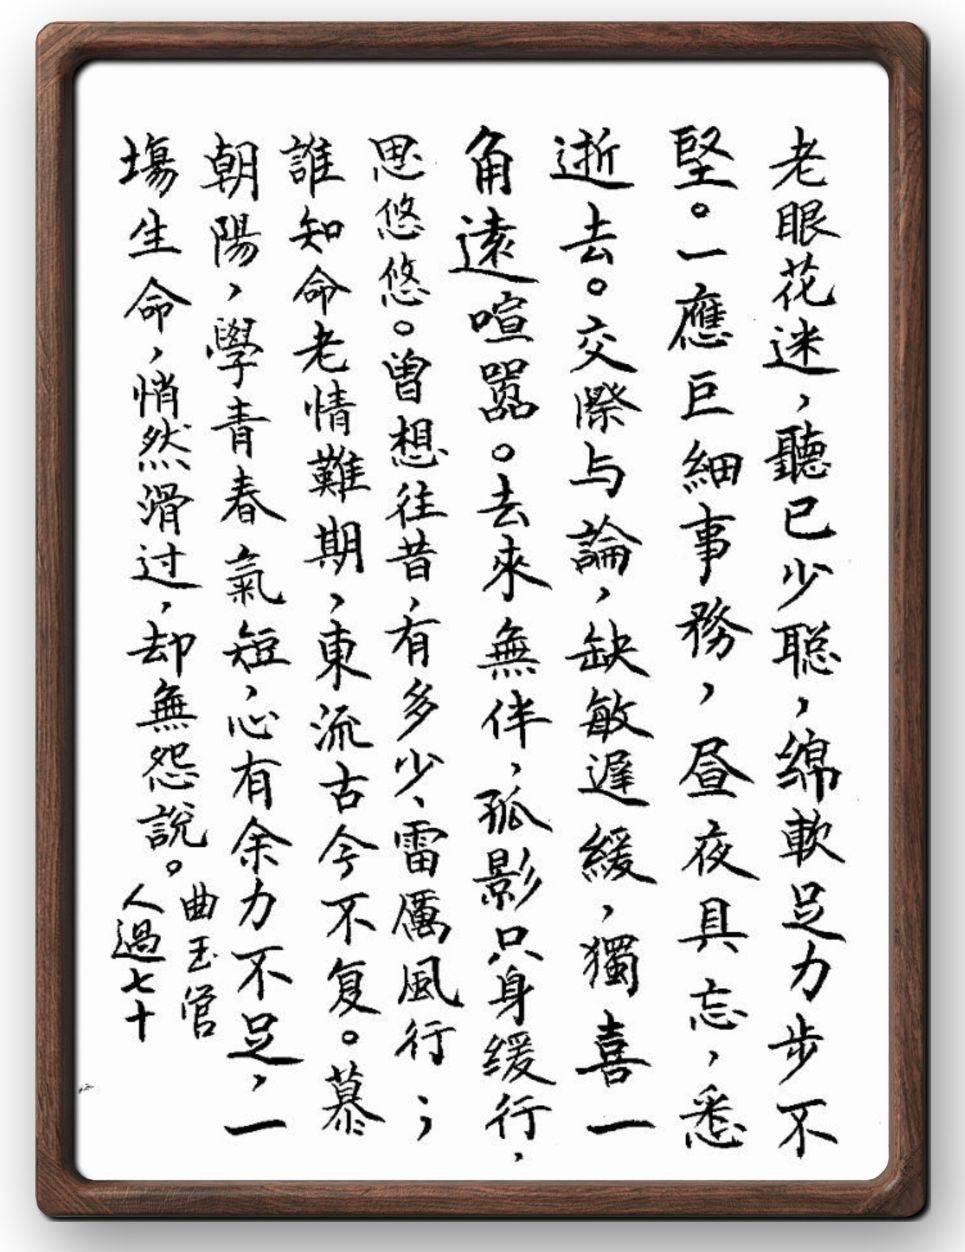 老眼花迷，聽已少聪，綿軟足力步不
堅。一應巨細事務，昼夜具忘，悉
逝去。交際与論，缺敏遲緩，獨喜一
角遠喧嚣。去來無伴，孤影只身緩行，
思悠悠。曾想往昔，有多少、雷厲風行；
誰知命老情難期，東流古今不复。慕
朝陽，學青春氣短，心有余力不足，一
場生命，悄然滑过，却無怨說。
曲玉管
人過七十